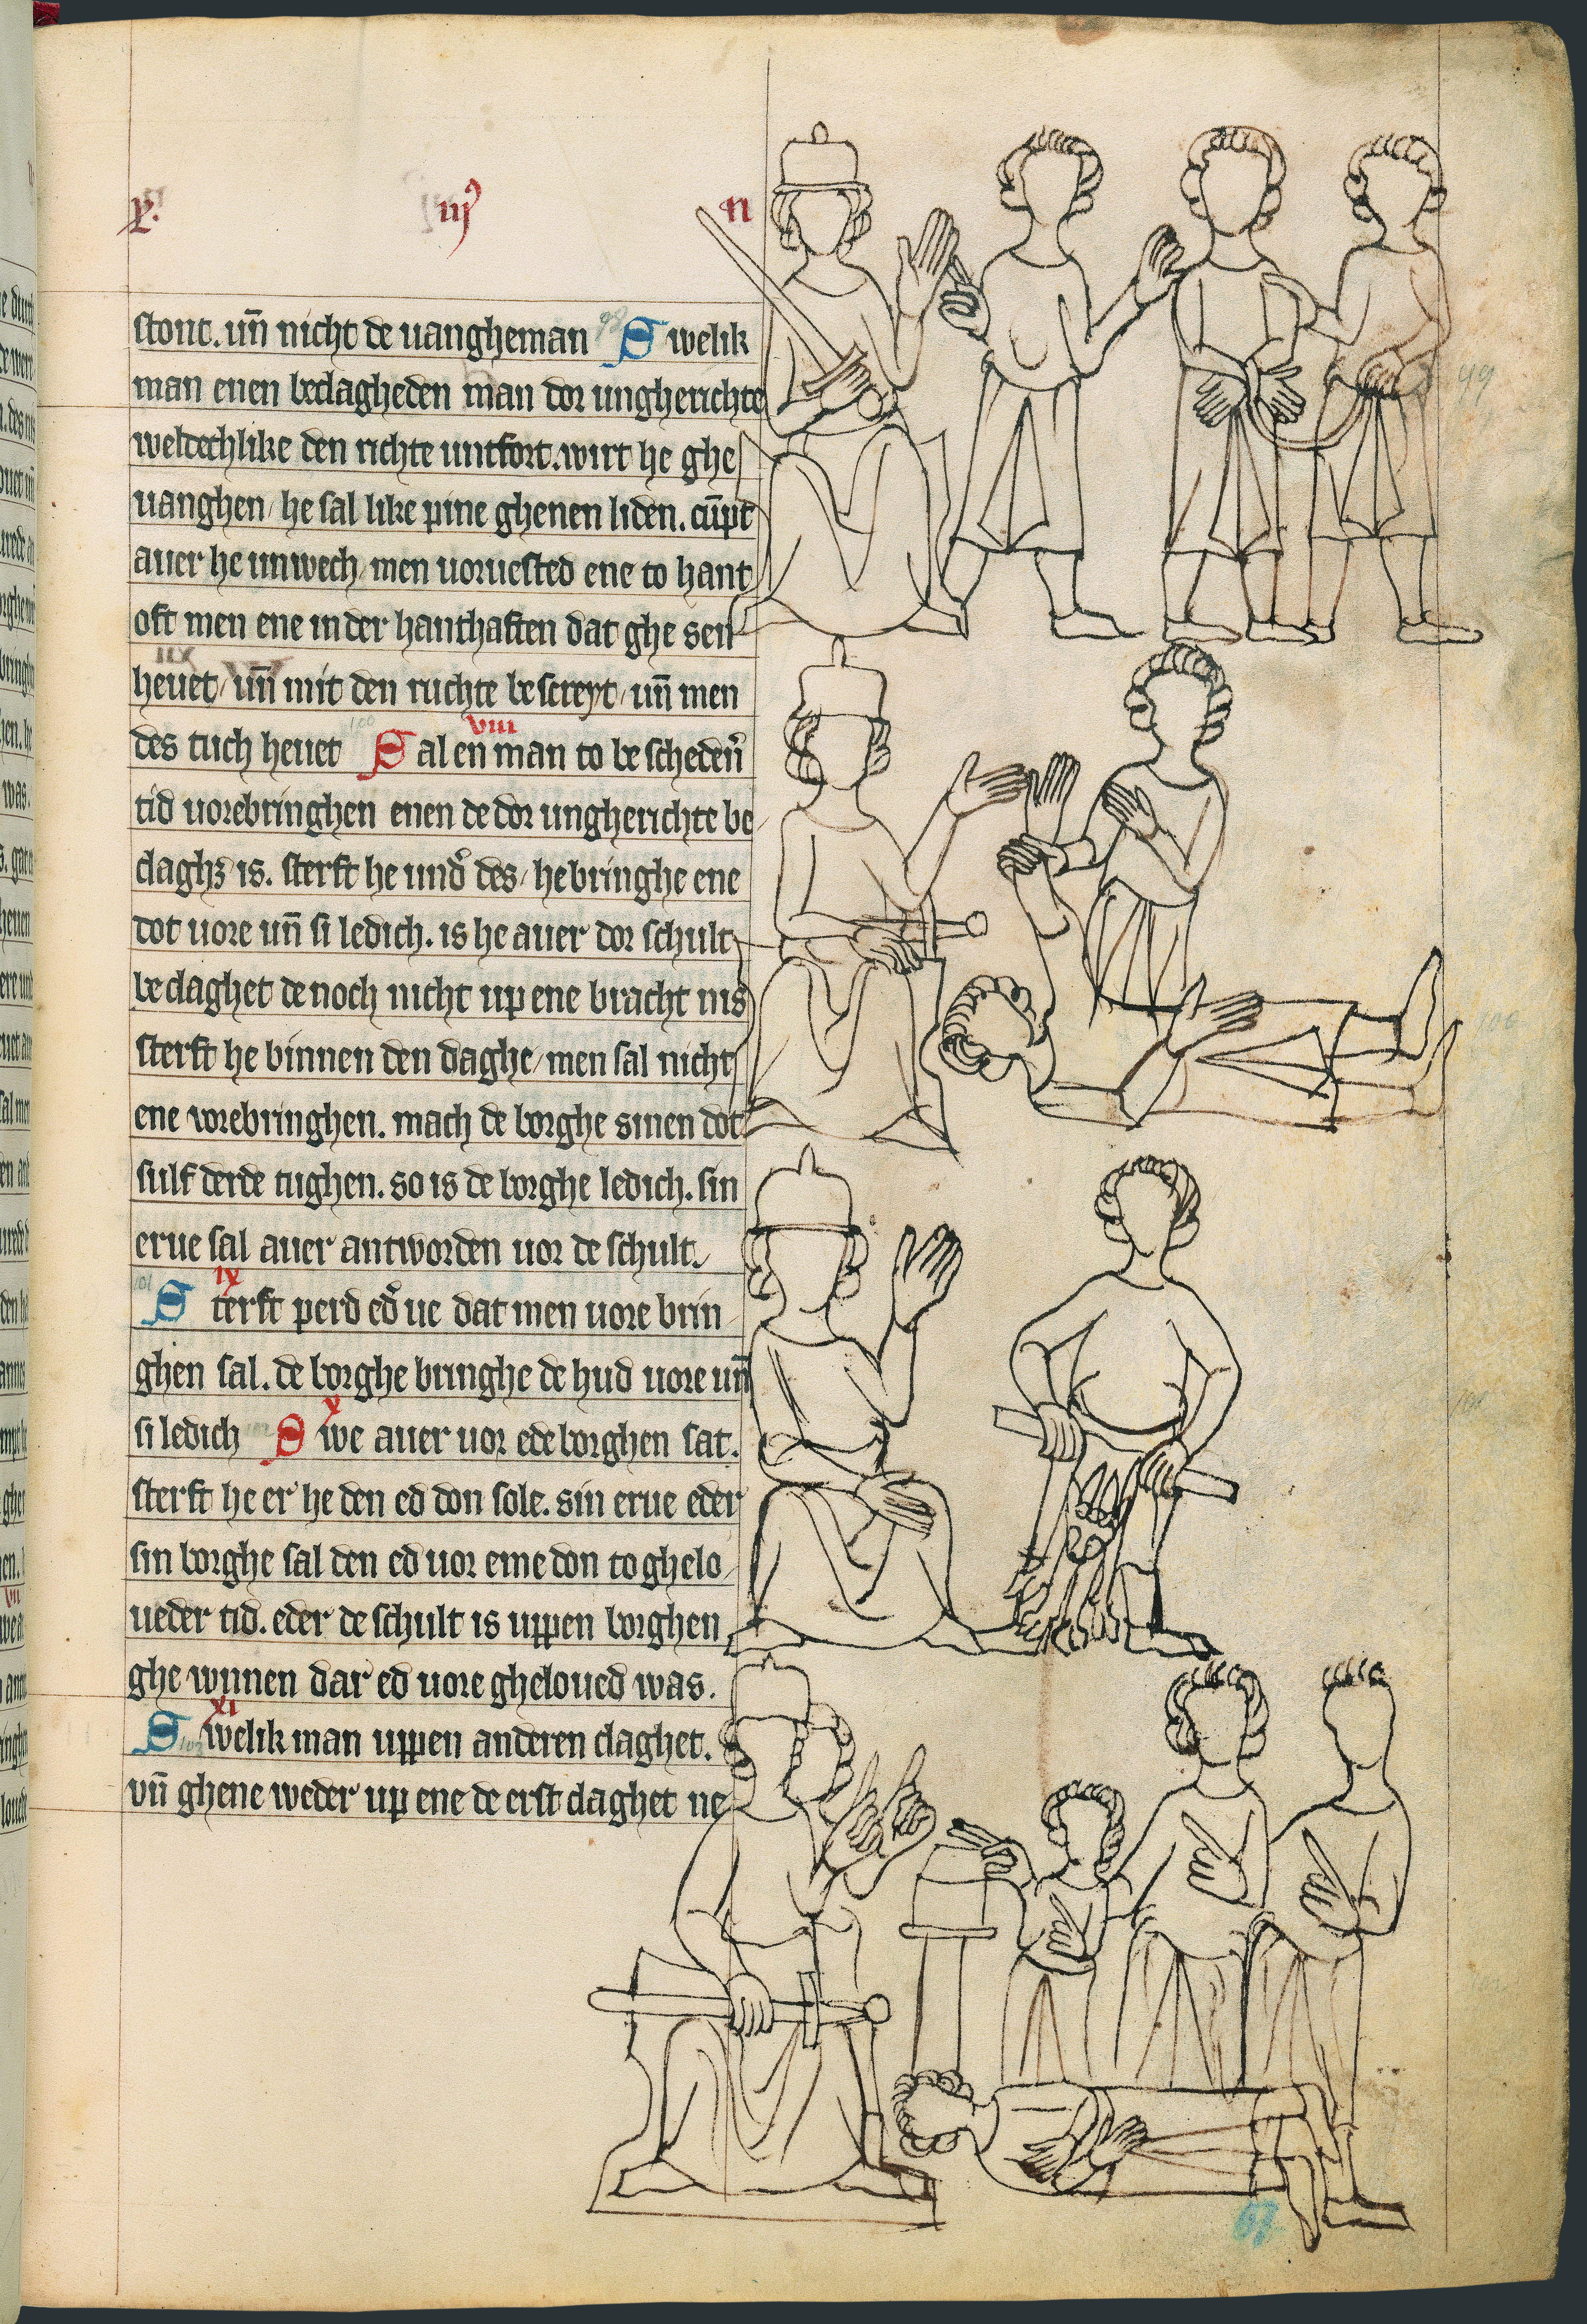 x. iij n
stont. uñ nicht de uangheman Swelik
man enen beclagheden man dor ungherichte
weldechlike den richte untfort. wirt he ghe
uanghen / he sal like pine ghenen liden. cūpt
auer he unwech / men uoruested ene to hant
oft men ene in der hanthaften dat ghe sen
heuet / uñ mit den ruchte be screyt / uñ men
viii
des tuch heuet Sal en man to be scheden̄
tid uorebringhen enen de dor ungherichte be
claghꝫ is. sterft he und̄ des / he bringhe ene
dot uore uñ si ledich. is he auer dor schult
be claghet de noch nicht up ene bracht nis
sterft he binnen den daghe / men sal nicht
ene vorebringhen. mach de borghe sinen dot
sulf derde tughen. so is de borghe ledich. sin
erue sal auer antworden uor de schult.
ix
Sterft perd ed̄ ue dat men uore brin
ghen sal. de borghe bringhe de hud uore uñ
x
si ledich Swe auer uor ede borghen sat.
sterft he er he den ed don sole. sin erue eder
sin borghe sal den ed uor eme don to ghelo
ueder tid. eder de schult is uppen borghen
ghe wnnen dar ed uore gheloued was.
xi
Swelik man uppen anderen claghet.
vñ ghene weder up ene de erst claghet ne
67